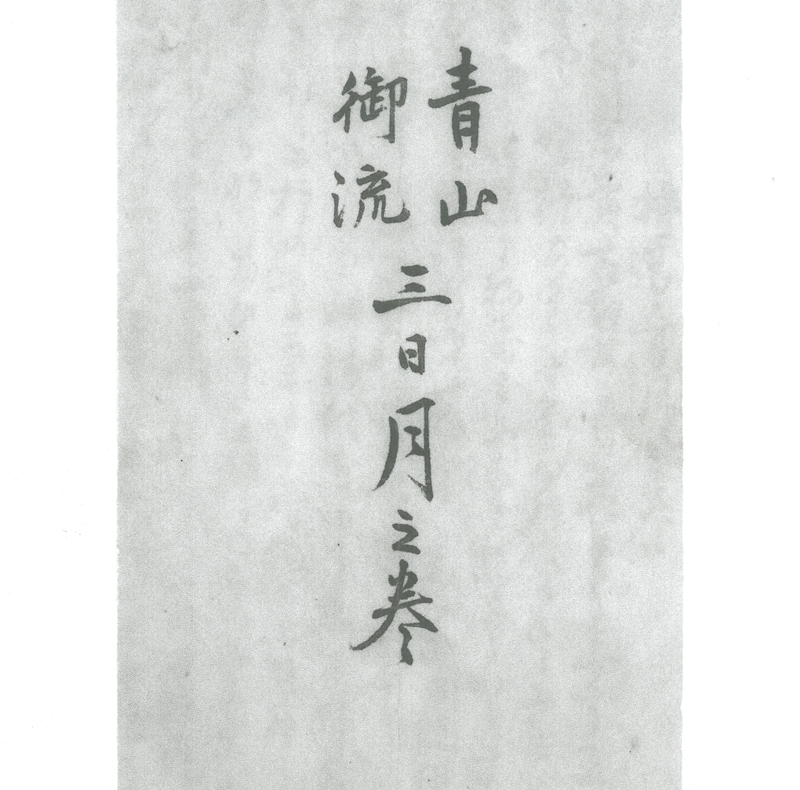 青山
御流
三日月之巻